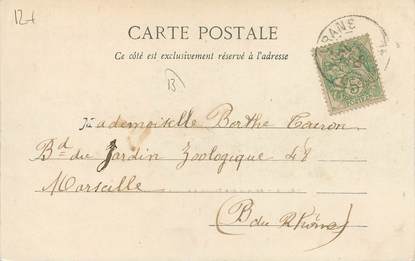 12+
CARTE POSTALE
Ce côté est exclusivement réservé à l'adresse
B
Mademoiselle Berthe
Bd du Jardin Zoologique 48
Marseille
(B du Rhône)